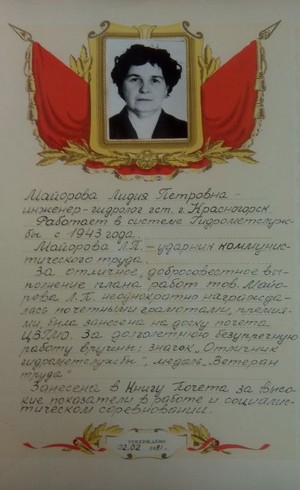 Майорова Лидия Петровна -
инженер-гидролог гст. г. Красногорск.
Работает в системе Гидрометслуж-
бы с 1943 года.
Майорова Л.П. - ударник коммунис-
тического труда.
За отличное, добросовестное вы-
полнение плана работ тов. Майо-
рова Л.П. неоднократно награжда-
лась почетными грамотами, премия-
ми, была занесена на доску почета
За долголетнюю безупречную
работу вручены: значок "Отличник
гидрометслужбы", медаль "Ветеран
труда"
Занесена в Книгу Почета за высо-
кие показатели в работе и социалис-
тическом соревновании.
УТВЕРЖДЕНО
02.02 1981 г.